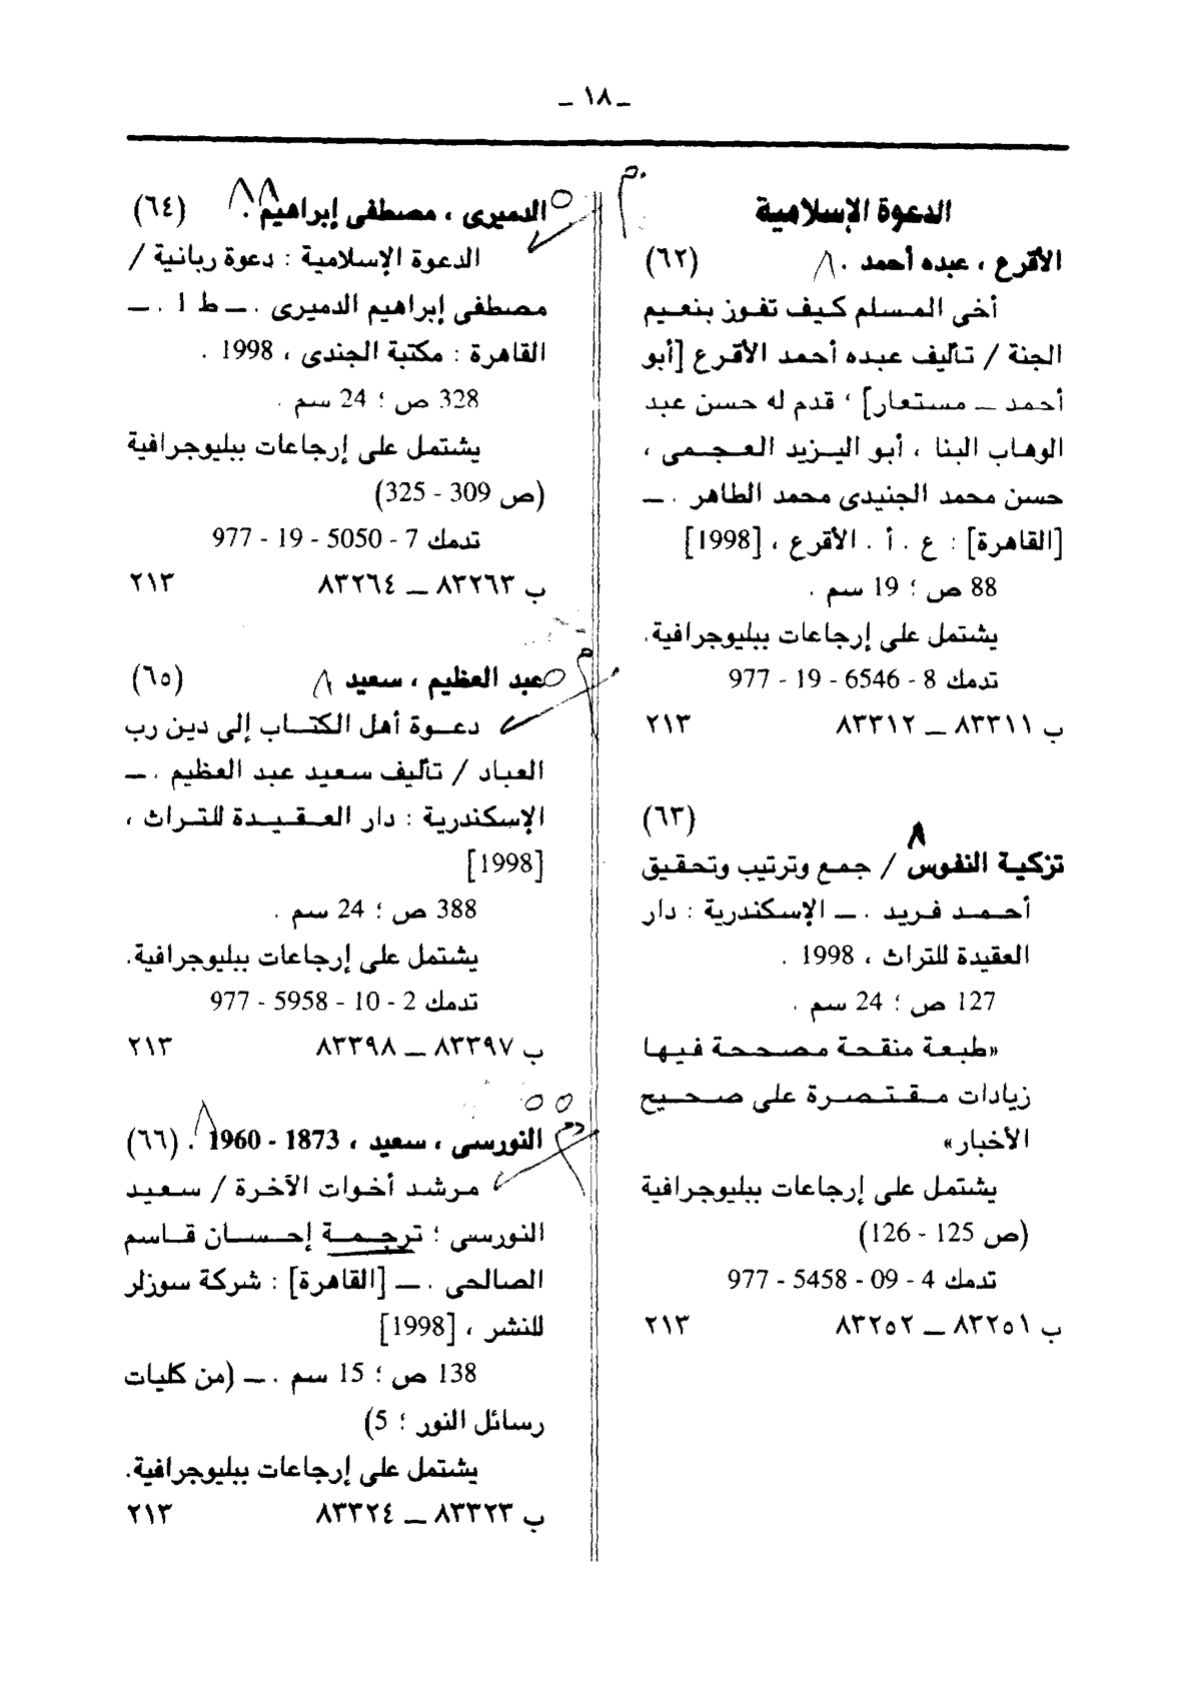 ـ ١٨ ـ
الدعوة الإسلامية
الأقرع ، عبده أحمد . (٦٢)
أخى المسلم كيف تفوز بنعيم
الجنة / تأليف عبده أحمد الأقرع [أبو
أحمد ــ مستعار] ؛ قدم له حسن عبد
الوهاب البنا ، أبو اليزيد العجمى ،
حسن محمد الجنيدى محمد الطاهر . ــ
[القاهرة] : ع . أ . الأقرع ، [1998]
88 ص ؛ 19 سم .
يشتمل على إرجاعات ببليوجرافية.
تدمك 8 - 6546 - 19 - 977
ب ٨٣٣١١ ــ ٨٣٣١٢ ٢١٣
(٦٣)
تزكية النفوس / جمع وترتيب وتحقيق
أحمد فريد . ــ الإسكندرية : دار
العقيدة للتراث ، 1998 .
127 ص ؛ 24 سم .
«طبعة منقحة مصححة فيها
زيادات مقتصرة على صحيح
الأخبار»
يشتمل على إرجاعات ببليوجرافية
(ص 125 - 126)
تدمك 4 - 09 - 5458 - 977
ب ٨٣٢٥١ ــ ٨٣٢٥٢ ٢١٣
الدميرى ، مصطفى إبراهيم . (٦٤)
الدعوة الإسلامية : دعوة ربانية /
مصطفى إبراهيم الدميرى . ــ ط ١ . ــ
القاهرة : مكتبة الجندى ، 1998 .
328 ص ؛ 24 سم .
يشتمل على إرجاعات ببليوجرافية
(ص 309 - 325)
تدمك 7 - 5050 - 19 - 977
ب ٨٣٢٦٣ ــ ٨٣٢٦٤ ٢١٣
عبد العظيم ، سعيد (٦٥)
دعوة أهل الكتاب إلى دين رب
العباد / تأليف سعيد عبد العظيم . ــ
الإسكندرية : دار العقيدة للتراث ،
[1998]
388 ص ؛ 24 سم .
يشتمل على إرجاعات ببليوجرافية.
تدمك 2 - 10 - 5958 - 977
ب ٨٣٣٩٧ ــ ٨٣٣٩٨ ٢١٣
النورسى ، سعيد ، 1873 - 1960 . (٦٦)
مرشد أخوات الآخرة / سعيد
النورسى ؛ ترجمة إحسان قاسم
الصالحى . ــ [القاهرة] : شركة سوزلر
للنشر ، [1998]
138 ص ؛ 15 سم . ــ (من كليات
رسائل النور ؛ 5)
يشتمل على إرجاعات ببليوجرافية.
ب ٨٣٣٢٣ ــ ٨٣٣٢٤ ٢١٣